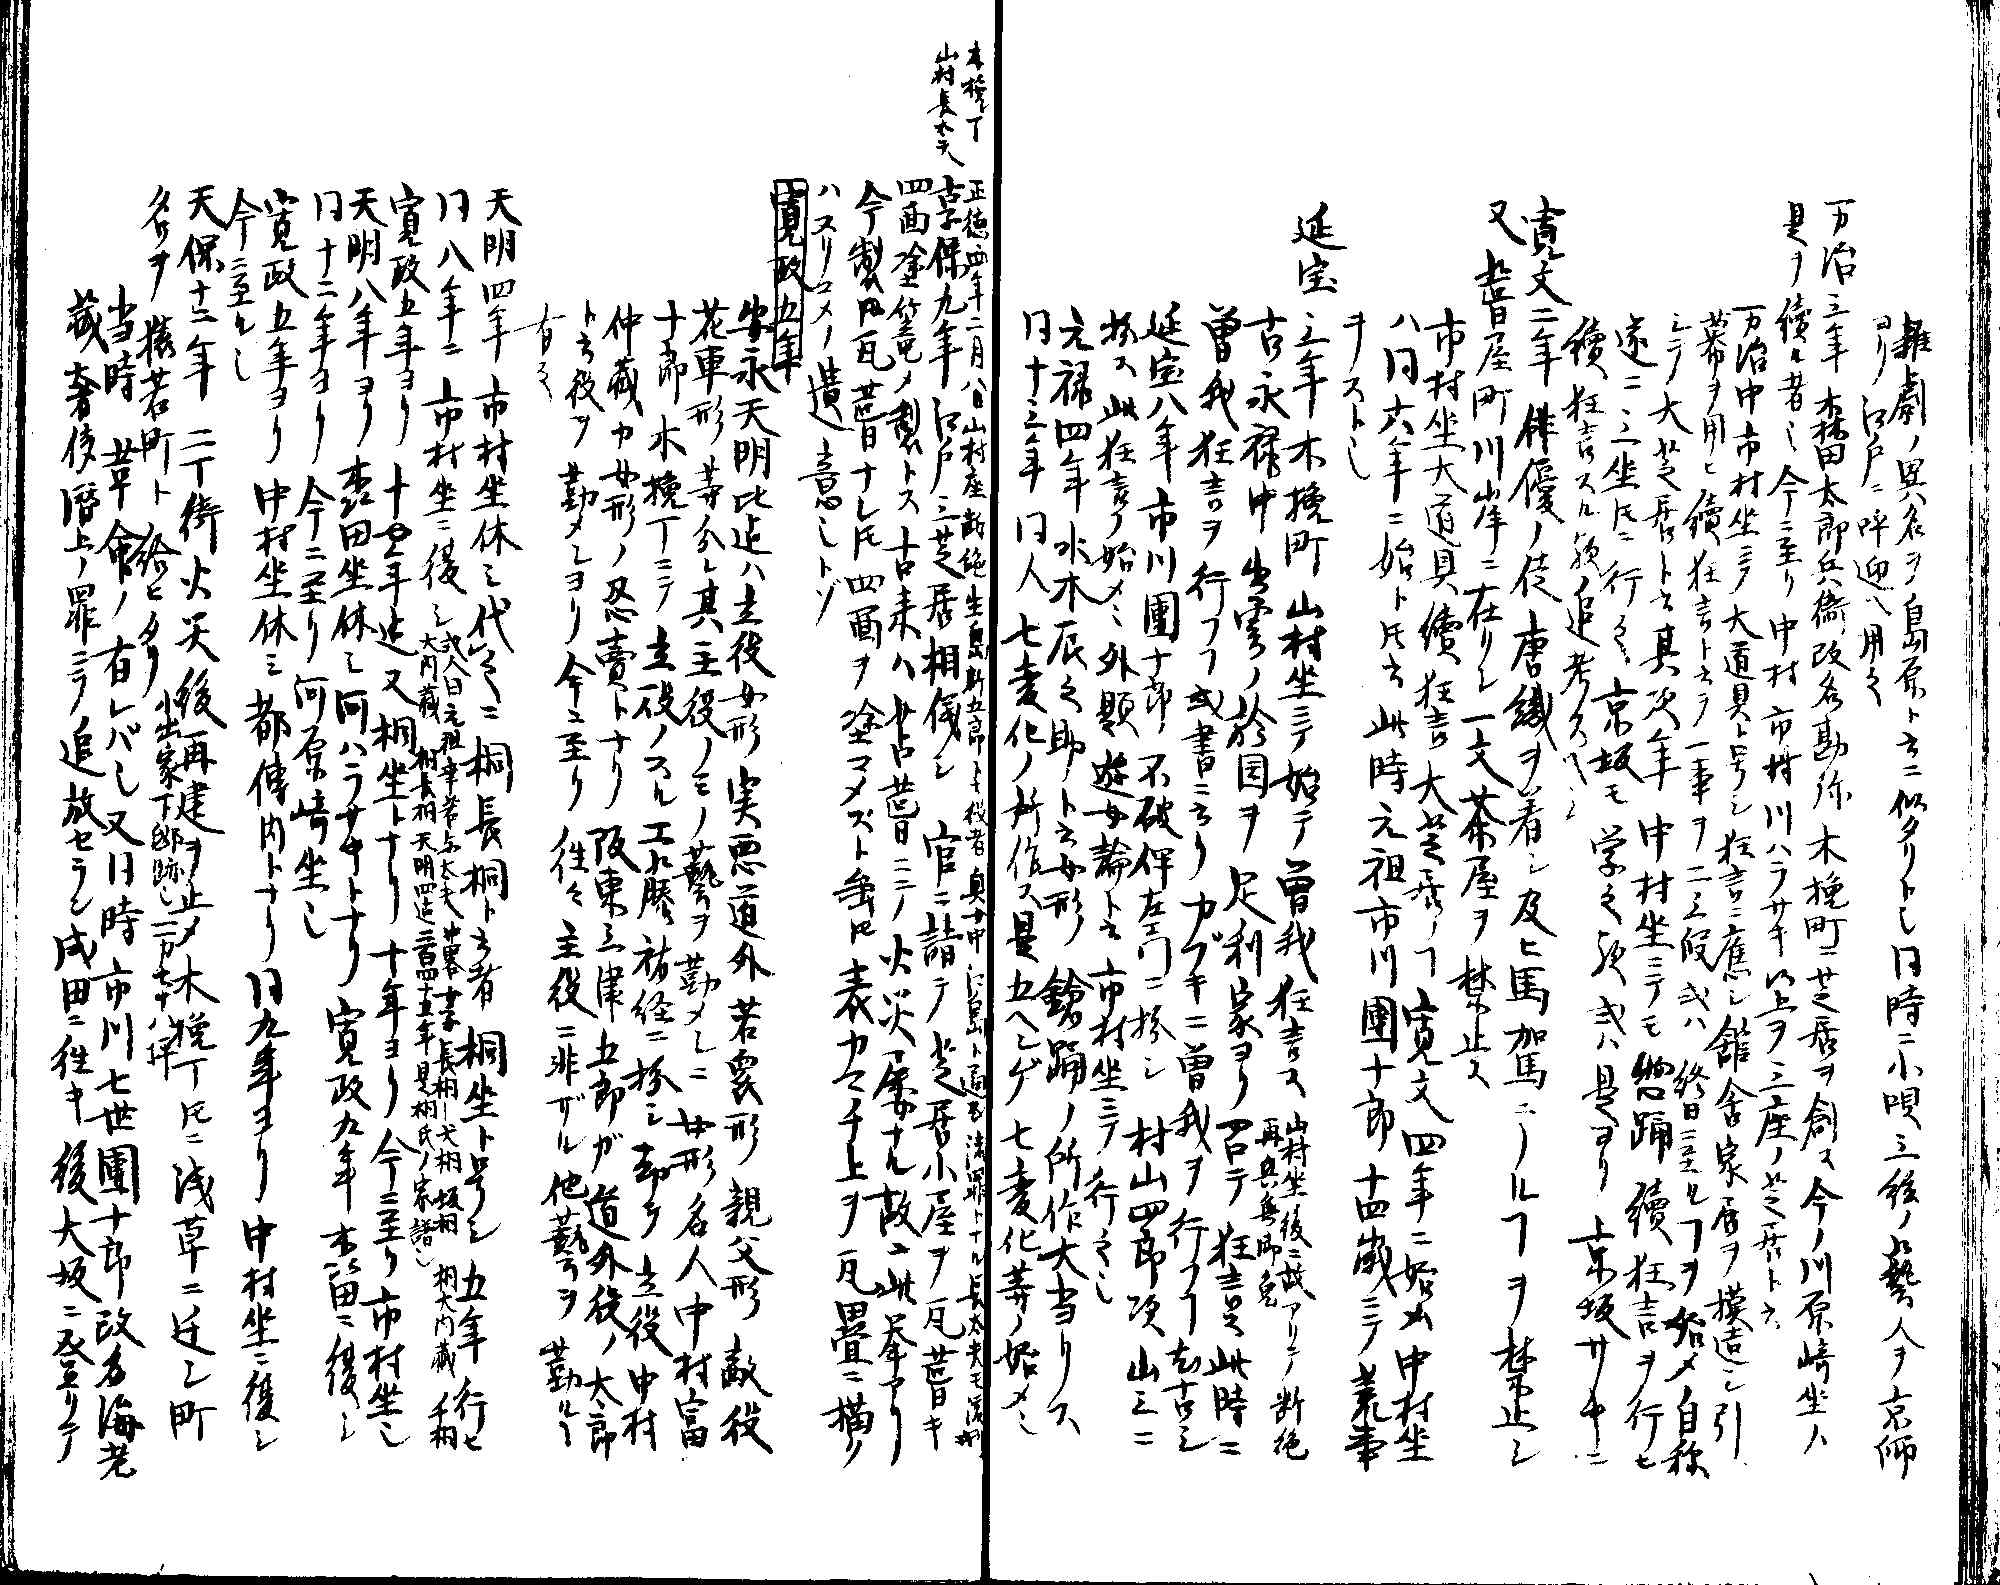 雑劇ノ異名ヲ島原ト云ニ似タリトし 同時ニ小唄三絃ノ藝人ヲ京師
ヨリ江戸ニ呼迎へ用之
万治三年 森田太郎兵衛改名勘弥木挽町ニ芝居ヲ創ス今ノ川原崎坐ハ
是ヲ續ル者し 今ニ至リ中村市村川ハラサキ以上ヲ三座ノ芝居ト云
万治中市村坐ニテ大道具ト号シ狂言ニ應シ舘舎家居ヲ模造シ引
幕ヲ用ヒ續狂言ト云テ一事ヲ二三段或ハ終日ニ至ルヿヲ始メ自称
シテ大芝居ト云其次年中村坐ニテモ惣踊續狂言ヲ行セ
遂ニ三坐氏ニ行之 京坂モ学之歟或ハ是ヨリ京坂サキニ
續狂言スル歟追考スベシ
寛文二年 俳優ノ徒唐織ヲ着シ及ヒ馬駕ニノルヿヲ禁止シ
又昔屋町川岸ニ在リシ一文茶屋ヲ禁止ス
市村坐大道具續狂言大芝居ノヿ寛文四年ニ始メ中村坐
ハ同六年ニ始ト氏云此時元祖市川團十郎十四歳ニテ荒事
ヲストし
延宝三年 木挽町山村坐ニテ始テ曽我狂言ス 山村坐後ニ故アリテ断絶
再興無郎免
古永禄中出雲ノ於国ヲ足利家ヨリ召テ狂言是此時ニ
曽我狂言ヲ行フヿ或書ニ云リカブキニ曽我ヲ行フヿ尤古シ
延宝八年市川團十郎不破伴左エ門ニ扮シ村山四郎次山三ニ
扮ス此狂言ノ始メ外題遊女論ト云市村坐ニテ行之し
元禄四年水木辰之助ト云女形鎗踊ノ所作大当リス
同十三年同人七変化ノ所作ス是五ヘンゲ七変化等ノ始メし
木挽丁
山村長太夫
正徳四年二月八日山村座断絶生島新五郎ト云役者奥女中江島ト通る法罪トナル長太夫モ流刑
享保九年江戸三芝居相儀シ官ニ請テ芝居小屋ヲ瓦葺キ
四面塗篭ノ製トス古来ハ苫葺ニシテ火災屡ナル故ニ此挙アリ
今製ハ瓦葺ナレ氏四面ヲ塗コメズト雖氏表カマチ上ヲ瓦畳ニ描ク
ハヌリコメノ遺意シトゾ
寛政五年
安永天明比迄ハ立役女形実悪道外若衆形親父形敵役
花車形等分レ其主役ノミノ藝ヲ勤メシニ女形名人中村富
十郎木挽丁ニテ立役ノスル工藤祐経ニ扮シ却テ立役中村
仲蔵カ女形ノ忍賣トナリ阪東三津五郎ガ道外役ノ太郎
ト云役ヲ勤メシヨリ今ニ至リ往々主役ニ非ザル他藝ヲ勤ルヿ
有之
天明四年市村坐休シ代之ニ桐長桐ト云者桐坐ト号シ五年行セ
同八年ニ市村坐ニ復シ 或人曰元祖幸若与太夫中畧 長桐 大桐 坂桐 桐大内蔵 千桐
大内蔵 桐長桐天明四迄二百四十五年見桐氏ノ家譜し
寛政五年ヨリ十年迄又桐坐トナリ十年ヨリ今ニ至リ市村坐し
天明八年ヨリ森田坐休シ河ハラサキトナリ寛政九年森田ニ復シ
同十二年ヨリ今ニ至リ河原崎坐し
寛政五年ヨリ中村坐休ミ都傳内トナリ同九年ヨリ中村坐ニ復シ
今ニ至ルし
天保十二年二丁街火災後再建ヲ止メ木挽丁氏ニ浅草ニ迁シ町
名ヲ猿若町ト給ヒタリ 小出家下邸跡し一万七十八坪
当時革命ノ有レバし又同時市川七世團十郎改名海老
蔵奢侈僭上ノ罪ニテ追放セラレ成田ニ往キ後大坂ニ登リテ